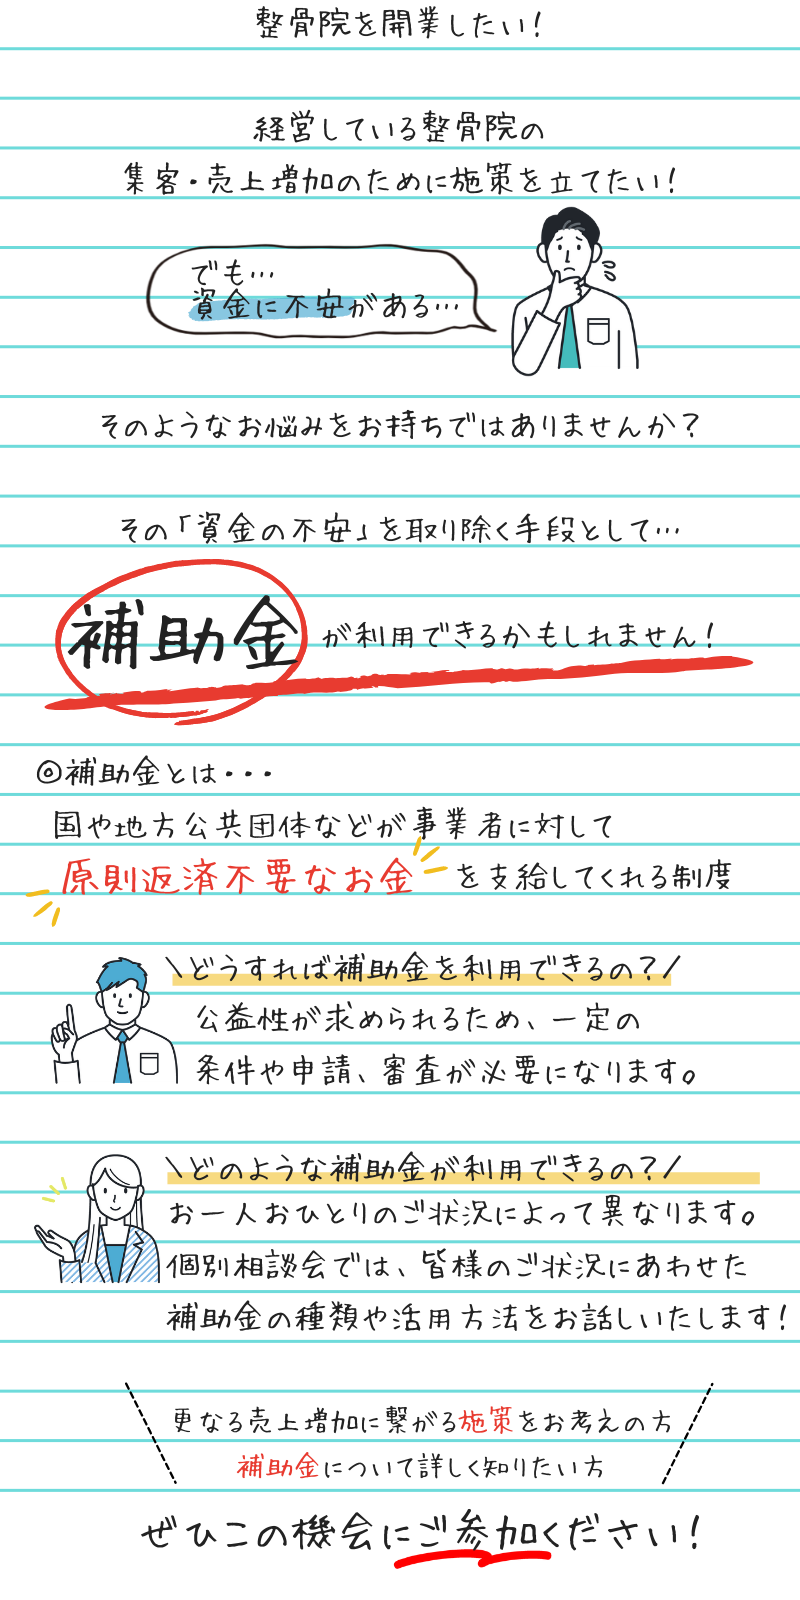 整骨院を開業したい！
経営している整骨院の
集客・売上増加のために施策を立てたい！
でも…
資金に不安がある…
そのようなお悩みをお持ちではありませんか？
その「資金の不安」を取り除く手段として…
補助金が利用できるかもしれません！
◎補助金とは・・・
国や地方公共団体などが事業者に対して
原則返済不要なお金を支給してくれる制度
\どうすれば補助金を利用できるの？/
公益性が求められるため、一定の
条件や申請、審査が必要になります。
\どのような補助金が利用できるの？/
お一人おひとりのご状況によって異なります。
個別相談会では、皆様のご状況にあわせた
補助金の種類や活用方法をお話しいたします！
更なる売上増加に繋がる施策をお考えの方
補助金について詳しく知りたい方
ぜひこの機会にご参加ください！